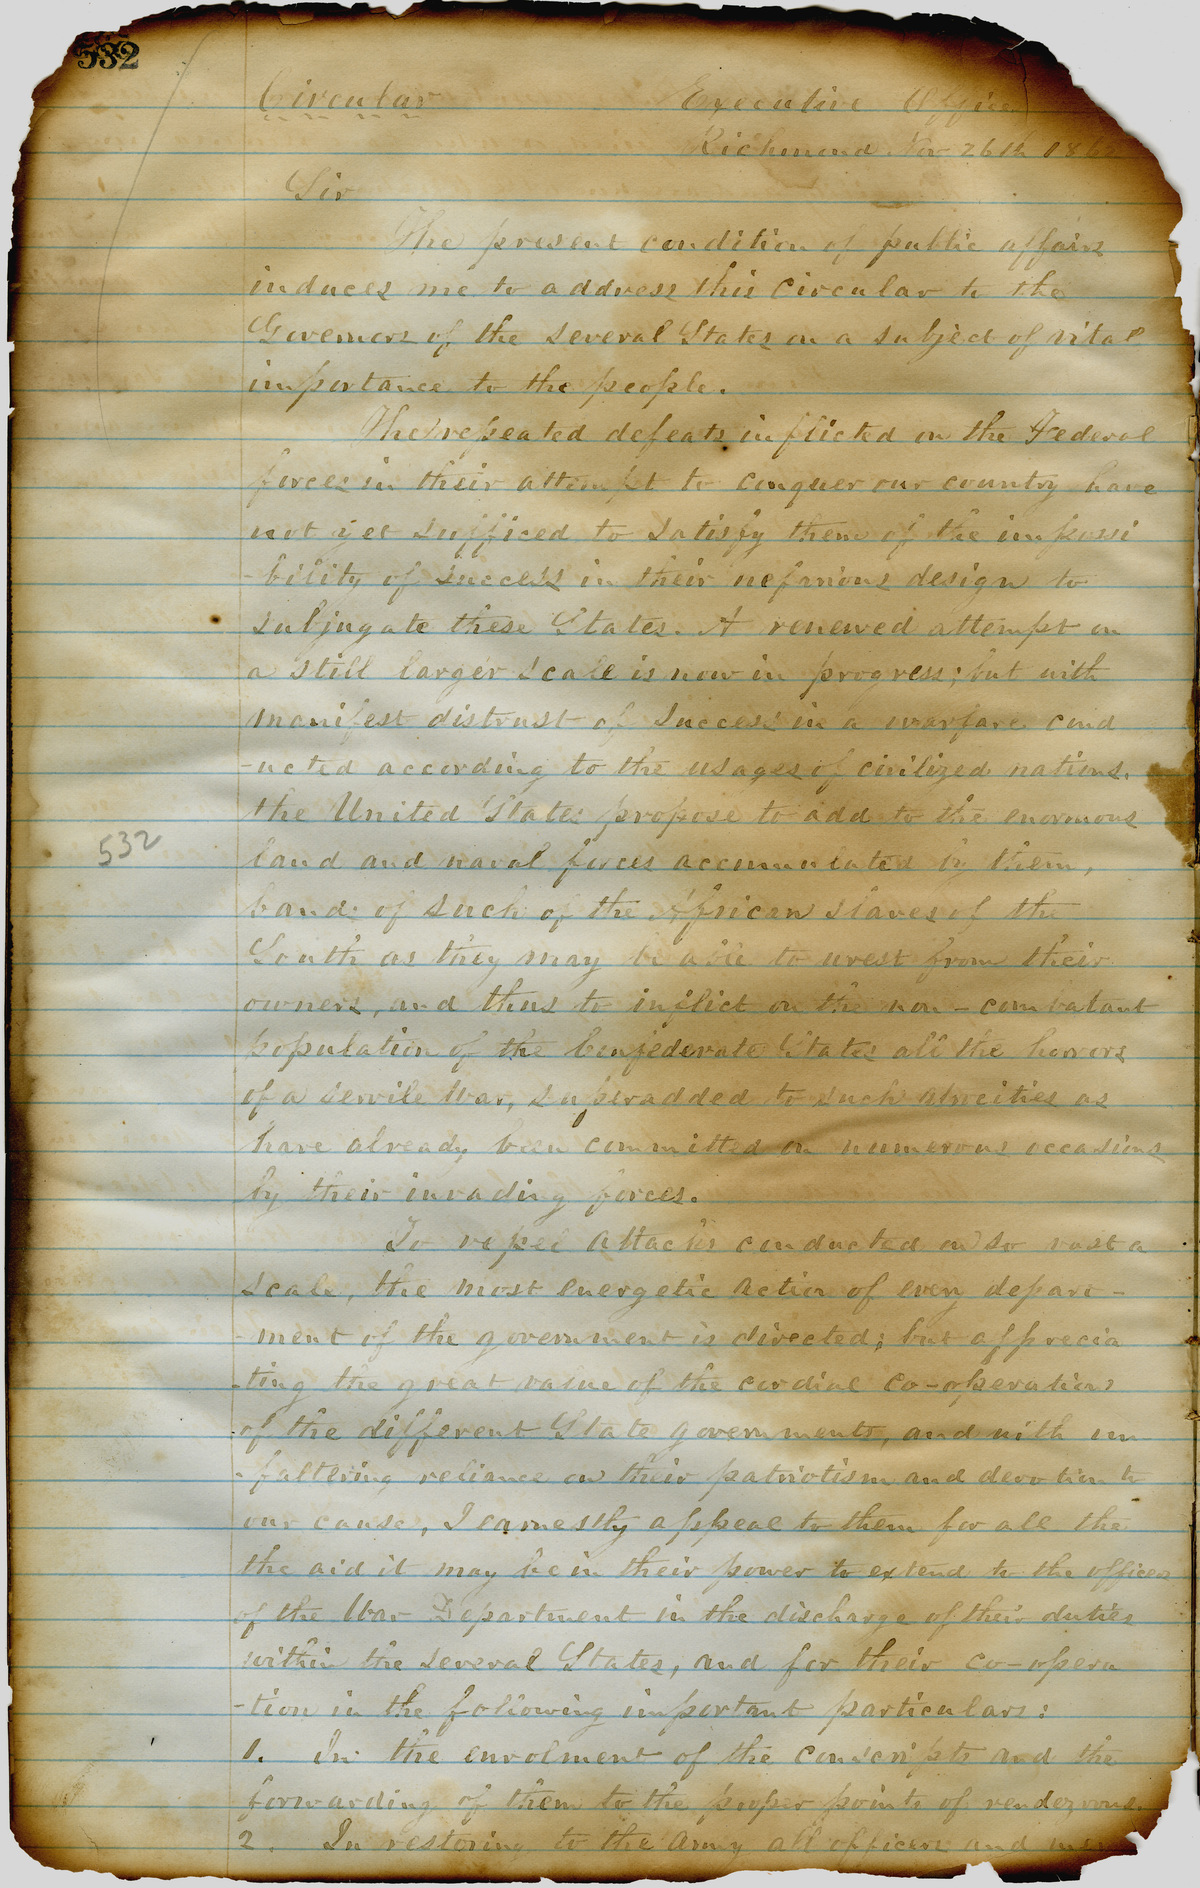 532
Circular Executive Office
Richmond Nov 26th 1862
Sir
The present condition of public affairs
induces me to address this circular to the
Governors of the several States on a subject of vital
importance to the people.
The repeated defeats inflicted on the Federal
forces in their attempt to conquer our country have
not yet sufficed to satisfy them of the impossi
-bility of success in their nefarious design to
subjugate these States. A renewed attempt on
a still larger scale is now in progress; but with
manifest distrust of success in a warfare cond
-ucted according to the usages of civilized nations.
the United States propose to add to the enormous
532
land and naval forces accumulated by them,
bands of such of the African slaves of the
South as they may be able to wrest from their
owners, and thus to inflict on the non-combatant
population of the Confederate States all the horrors
of a servile War, superadded to such atrocities as
have already been committed on numerous occasions
by their invading forces.
To repel attacks conducted on so vast a
scale, the most energetic action of every depart-
-ment of the government is directed; but apprecia
-ting the great value of the cordial co-operation
of the different State governments, and with un
-faltering reliance on their patriotism and devotion to
our cause, I earnestly appeal to them for all the
the aid it may be in their power to extend to the officers
of the War Department in the discharge of their duties
within the several States, and for their co-opera
-tion in the following important particulars:
1. In the enrolment of the conscripts and the
forwarding of them to the proper points of rendezvous.
2. In restoring to the Army all officers and men